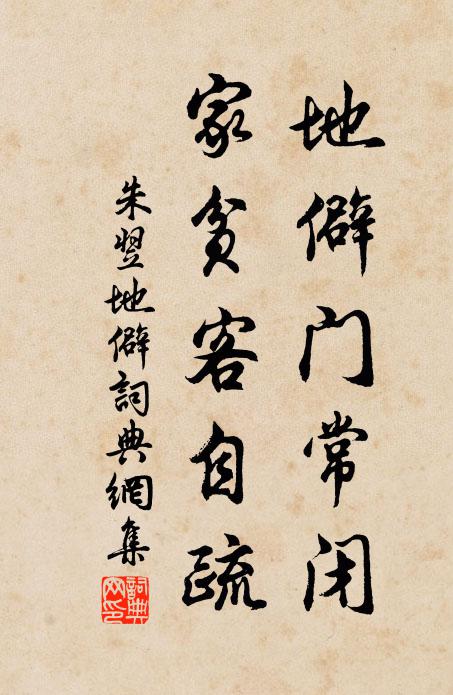 地僻门常闭
家贫客自疏
朱翌地僻詞典網集
詞典网印